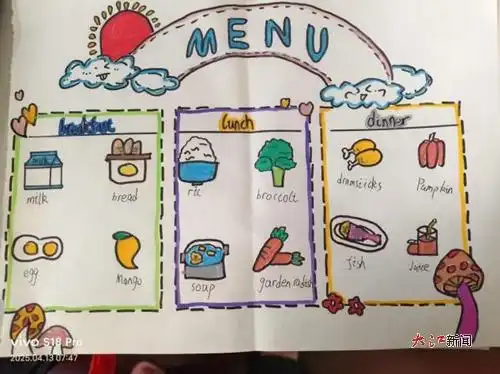 MENU
breakfast
milk
bread
egg
Mango
lunch
ric
broccoli
soup
garden radish
dinner
drumsticks
Pumpkin
fish
Juice
MILK
vivo S18 Pro
2025.04.13 07:47
大江新闻